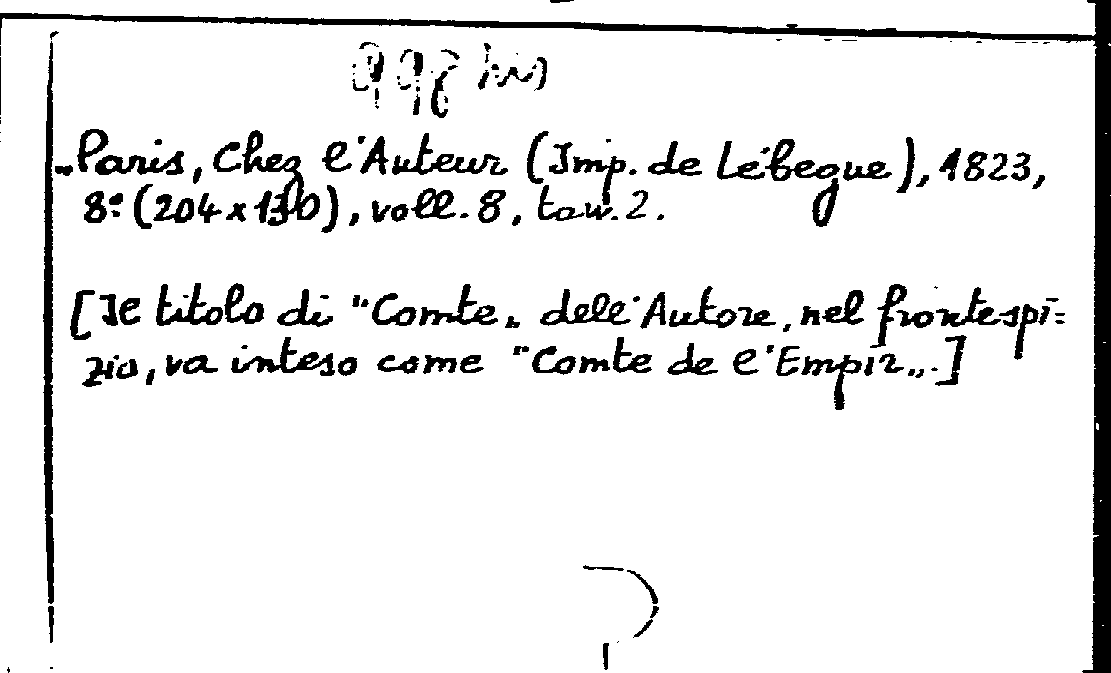 998 bis
„Paris, Chez l'Auteur (Imp. de Lébegue), 1823,
8º (204 x 130), voll. 8, tav. 2.
[Il titolo di "Comte„ dell'Autore, nel frontespi=
zio, va inteso come "Comte de l'Empir„.]